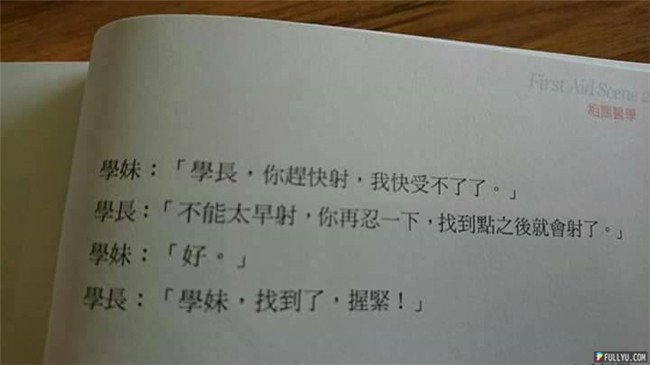 First Aid Scene 2
相關醫學
學妹：「學長，你趕快射，我快受不了了。」
學長：「不能太早射，你再忍一下，找到點之後就會射了。」
學妹：「好。」
學長：「學妹，找到了，握緊！」
FULLYU.COM